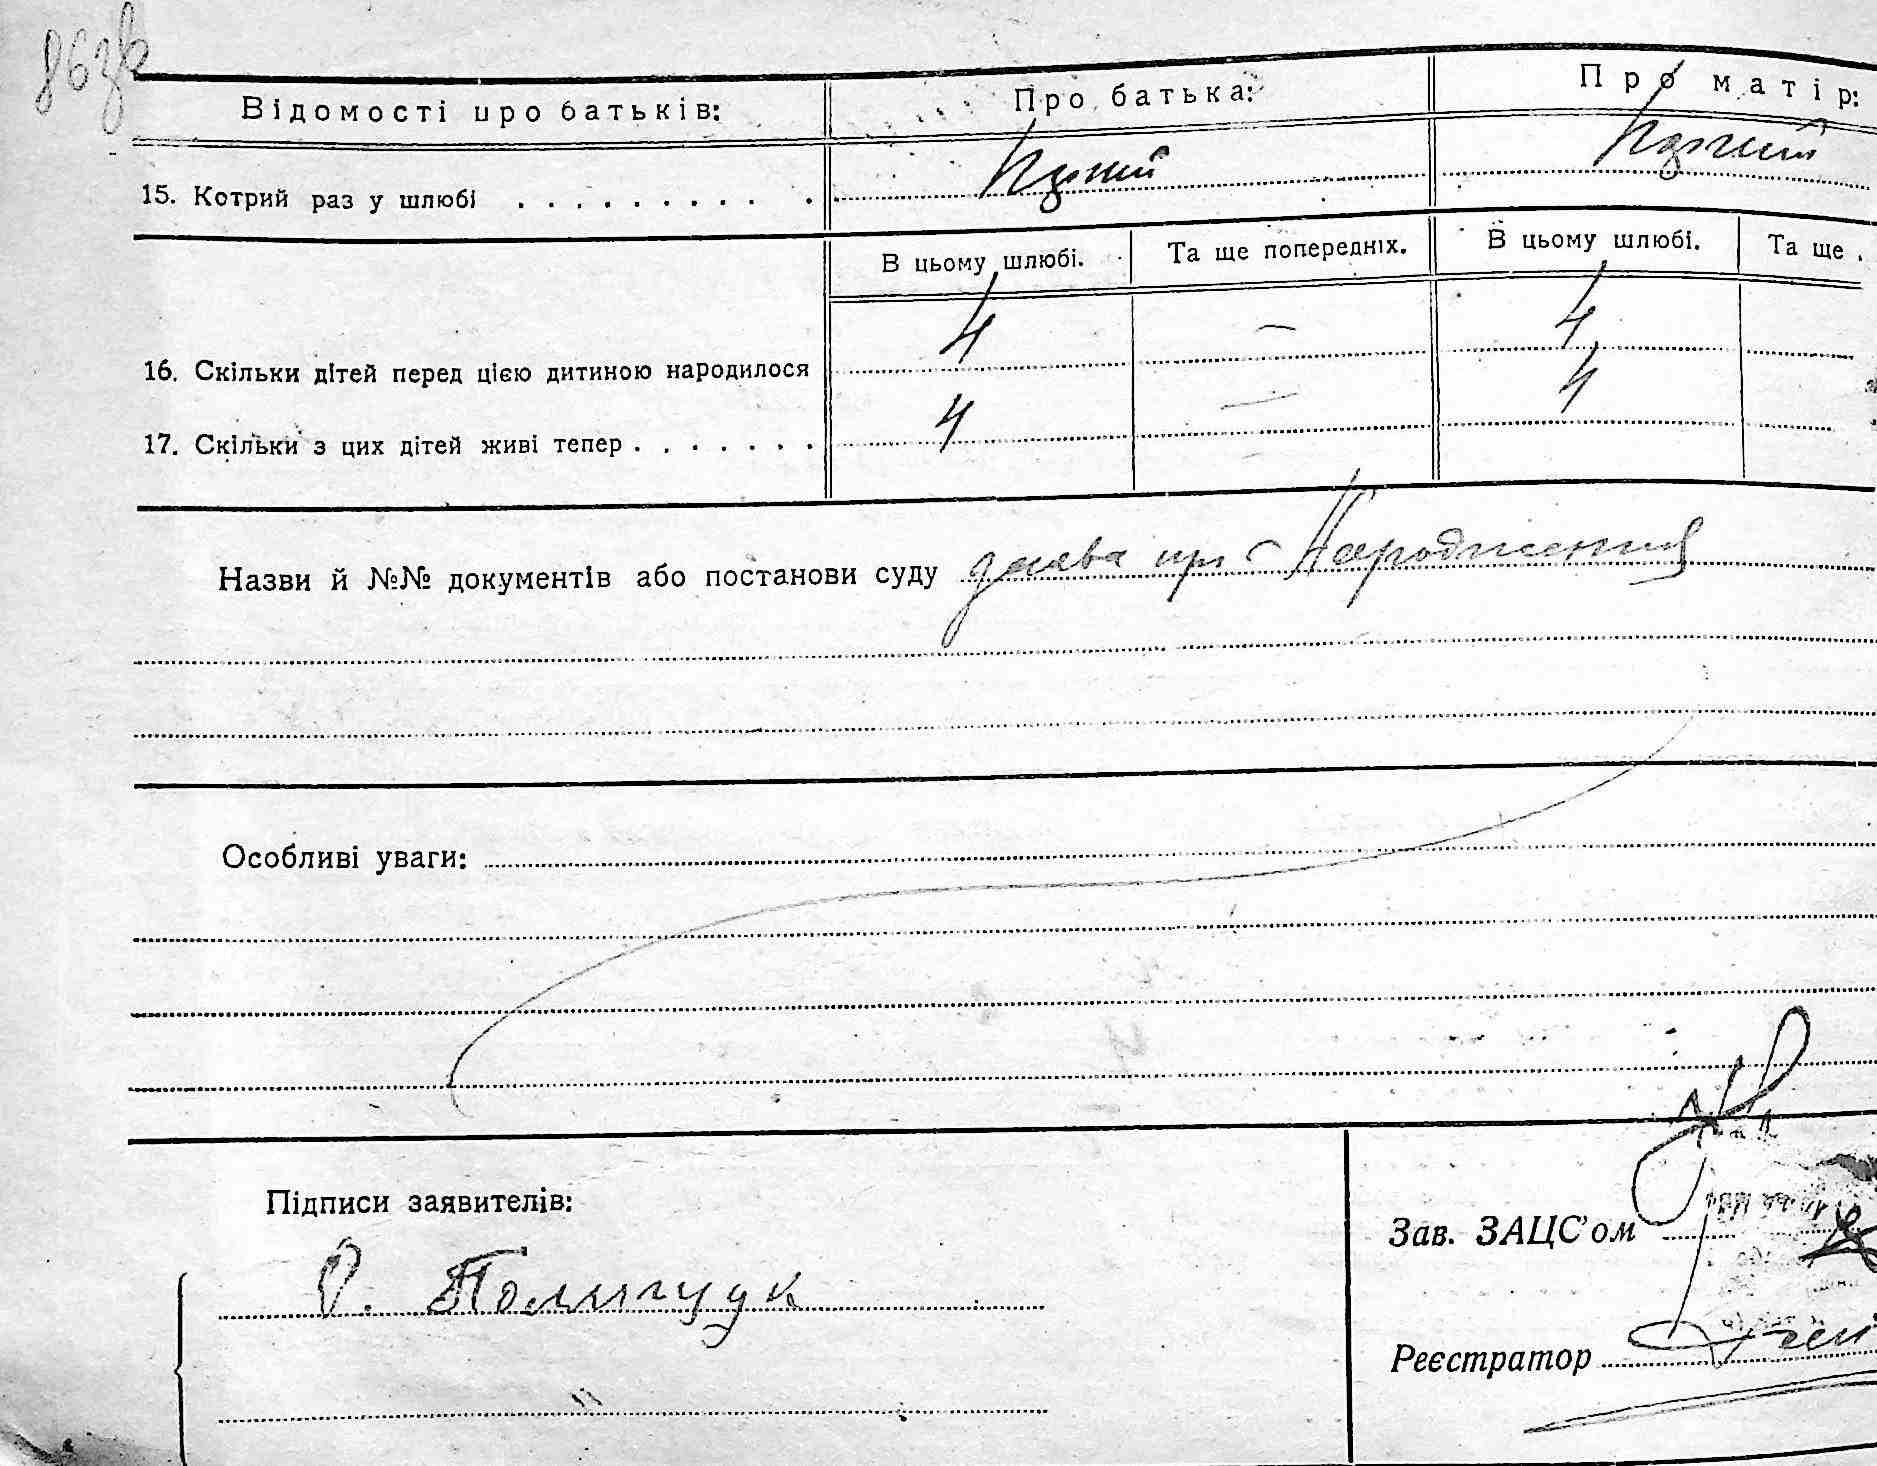 863к
Відомості про батьків: Про батька: Про матір:
15. Котрий раз у шлюбі . . . . . . . . . . Перший Перший
В цьому шлюбі. Та ще попередніх. В цьому шлюбі. Та ще
16. Скільки дітей перед цією дитиною народилося 4 — 4
17. Скільки з цих дітей живі тепер . . . . . . . 4 — 4
Назви й №№ документів або постанови суду заява про народження
Особливі уваги:
Підписи заявителів:
Зав. ЗАЦС'ом
О. Поліщук
Реєстратор